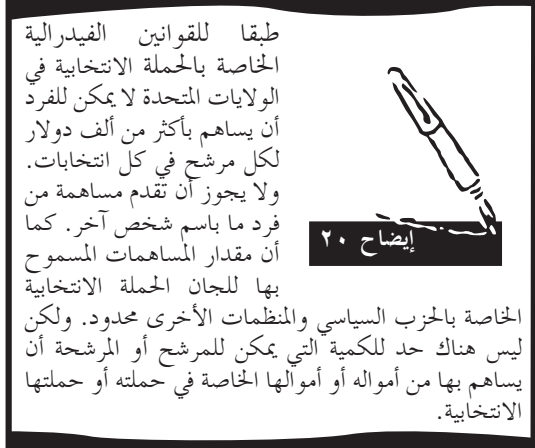 طبقا للقوانين الفيدرالية
الخاصة بالحملة الانتخابية في
الولايات المتحدة لا يمكن للفرد
أن يساهم بأكثر من ألف دولار
لكل مرشح في كل انتخابات.
ولا يجوز أن تقدم مساهمة من
فرد ما باسم شخص آخر. كما
أن مقدار المساهمات المسموح
بها للجان الحملة الانتخابية
الخاصة بالحزب السياسي والمنظمات الأخرى محدود. ولكن
ليس هناك حد للكمية التي يمكن للمرشح أو المرشحة أن
يساهم بها من أمواله أو أموالها الخاصة في حملته أو حملتها
الانتخابية.
إيضاح ٢٠